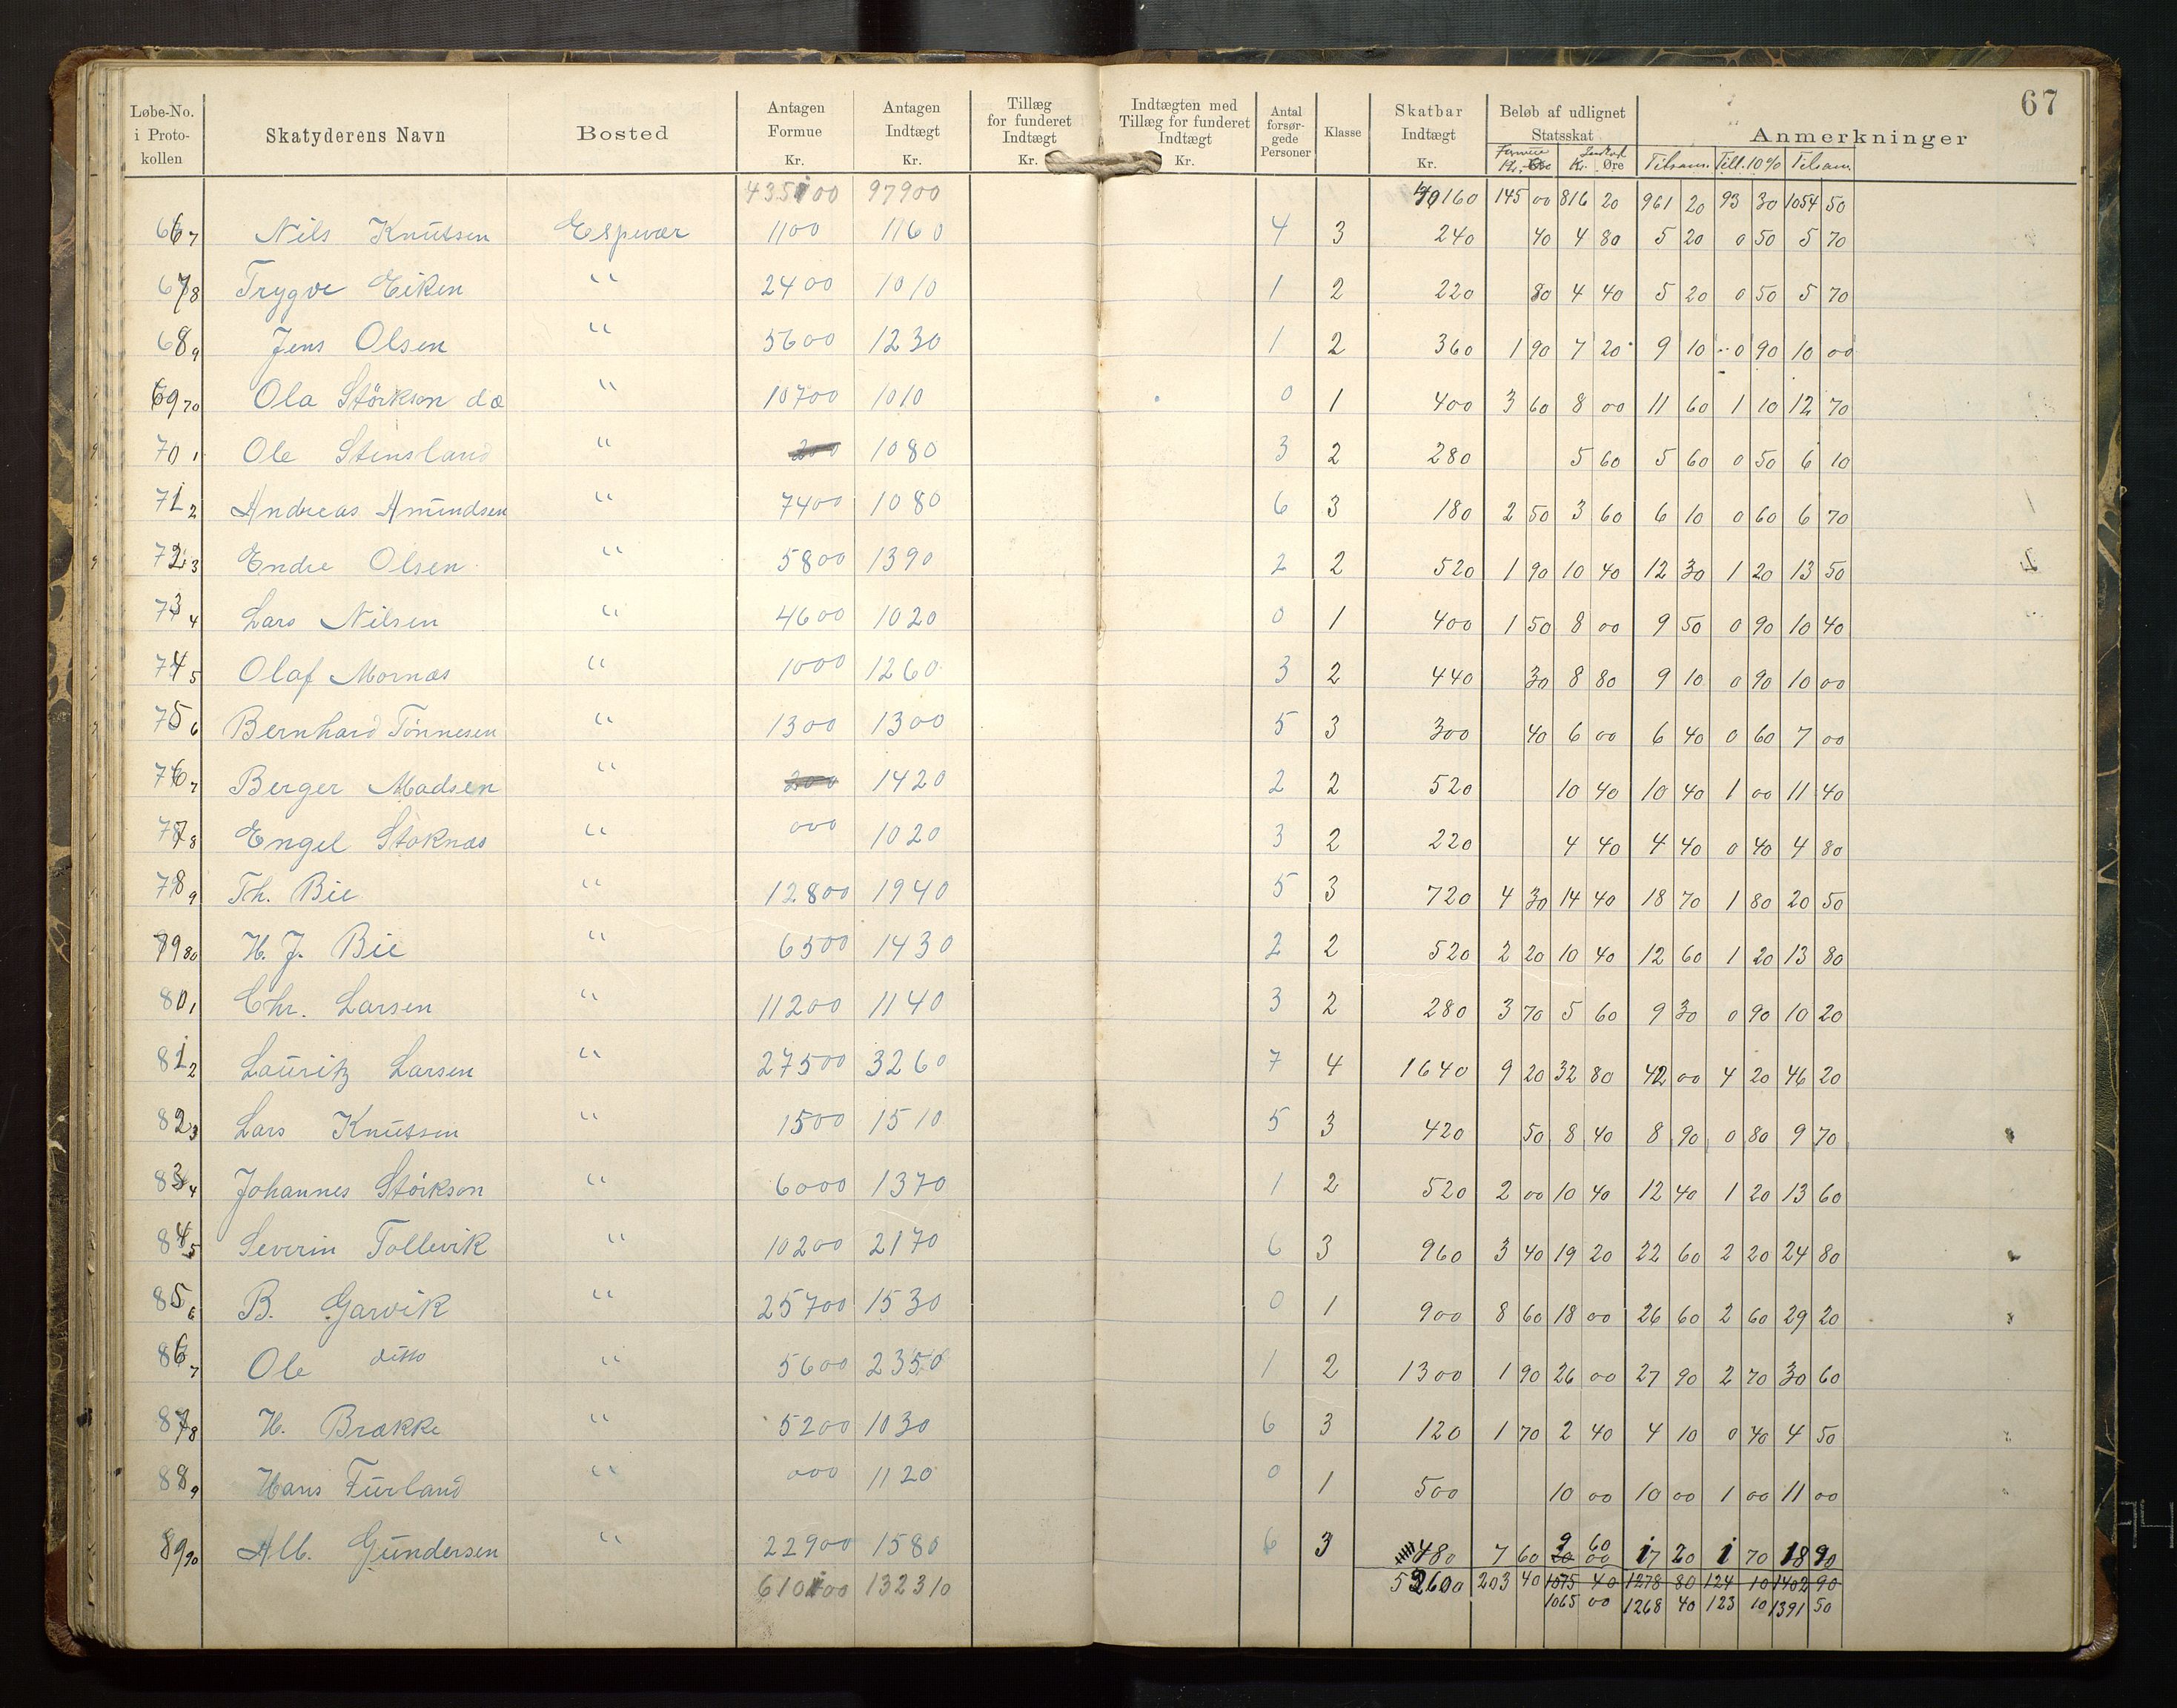 67
Løbe-No. i Proto-kollen | Skatyderens Navn | Bosted | Antagen Formue Kr. | Antagen Indtægt Kr. | Tillæg for funderet Indtægt Kr. | Indtægten med Tillæg for funderet Indtægt Kr. | Antal forsør-gede Personer | Klasse | Skatbar Indtægt Kr. | Beløb af udlignet Statsskat Formue Kr. Øre | Indtægt Kr. Øre | Anmerkninger Tilsam. | Till. 10% | Tilsam.
435100 | 97900 | 40160 | 145 00 | 816 20 | 961 20 | 93 30 | 1054 50
667 | Nils Knutsen | Espevær | 1100 | 1160 | 4 | 3 | 240 | 40 | 4 80 | 5 20 | 0 50 | 5 70
678 | Trygve Eiken | " | 2400 | 1010 | 1 | 2 | 220 | 80 | 4 40 | 5 20 | 0 50 | 5 70
689 | Jens Olsen | " | 5600 | 1230 | 1 | 2 | 360 | 1 90 | 7 20 | 9 10 | 0 90 | 10 00
6970 | Ola Störkson dæ | " | 10700 | 1010 | 0 | 1 | 400 | 3 60 | 8 00 | 11 60 | 1 10 | 12 70
701 | Ole Stensland | " | 200 | 1080 | 3 | 2 | 280 | 5 60 | 5 60 | 0 50 | 6 10
712 | Andreas Amundsen | " | 7400 | 1080 | 6 | 3 | 180 | 2 50 | 3 60 | 6 10 | 0 60 | 6 70
723 | Endre Olsen | " | 5800 | 1390 | 2 | 2 | 520 | 1 90 | 10 40 | 12 30 | 1 20 | 13 50
734 | Lars Nilsen | " | 4600 | 1020 | 0 | 1 | 400 | 1 50 | 8 00 | 9 50 | 0 90 | 10 40
745 | Olaf Mornæs | " | 1000 | 1260 | 3 | 2 | 440 | 30 | 8 80 | 9 10 | 0 90 | 10 00
756 | Bernhard Tönnesen | " | 1300 | 1300 | 5 | 3 | 300 | 40 | 6 00 | 6 40 | 0 60 | 7 00
767 | Berger Madsen | " | 200 | 1420 | 2 | 2 | 520 | 10 40 | 10 40 | 1 00 | 11 40
778 | Engel Stoknæs | " | 000 | 1020 | 3 | 2 | 220 | 4 40 | 4 40 | 0 40 | 4 80
789 | Th. Bie | " | 12800 | 1940 | 5 | 3 | 720 | 4 30 | 14 40 | 18 70 | 1 80 | 20 50
7980 | H. J. Bie | " | 6500 | 1430 | 2 | 2 | 520 | 2 20 | 10 40 | 12 60 | 1 20 | 13 80
801 | Chr. Larsen | " | 11200 | 1140 | 3 | 2 | 280 | 3 70 | 5 60 | 9 30 | 0 90 | 10 20
812 | Lauritz Larsen | " | 27500 | 3260 | 7 | 4 | 1640 | 9 20 | 32 80 | 42 00 | 4 20 | 46 20
823 | Lars Knutsen | " | 1500 | 1510 | 5 | 3 | 420 | 50 | 8 40 | 8 90 | 0 80 | 9 70
834 | Johannes Störkson | " | 6000 | 1370 | 1 | 2 | 520 | 2 00 | 10 40 | 12 40 | 1 20 | 13 60
845 | Severin Tollevik | " | 10200 | 2170 | 6 | 3 | 960 | 3 40 | 19 20 | 22 60 | 2 20 | 24 80
856 | B. Garvik | " | 25700 | 1530 | 0 | 1 | 900 | 8 60 | 18 00 | 26 60 | 2 60 | 29 20
867 | Ole ditto | " | 5600 | 2350 | 1 | 2 | 1300 | 1 90 | 26 00 | 27 90 | 2 70 | 30 60
878 | H. Brække | " | 5200 | 1030 | 6 | 3 | 120 | 1 70 | 2 40 | 4 10 | 0 40 | 4 50
889 | Hans Furland | " | 000 | 1120 | 0 | 1 | 500 | 10 00 | 10 00 | 1 00 | 11 00
8990 | Alb. Gundersen | " | 22900 | 1580 | 6 | 3 | 480 | 7 60 | 9 60 | 17 20 | 1 70 | 18 90
610100 | 132310 | 52600 | 203 40 | 1075 40 | 1278 80 | 124 10 | 1402 90
1065 00 | 1268 40 | 123 10 | 1391 50